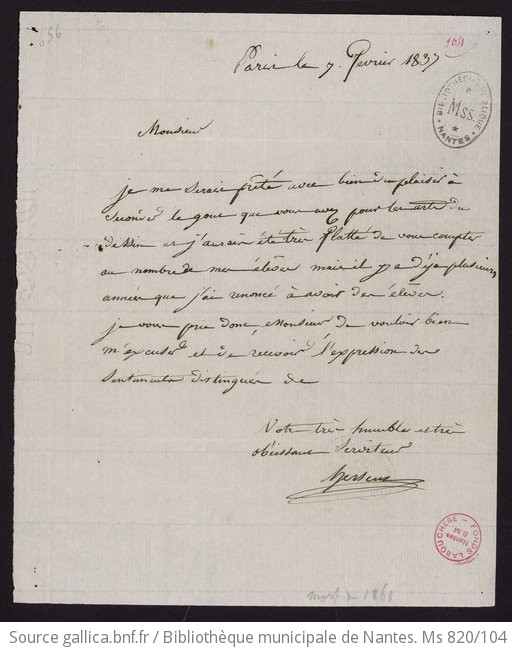 56
104
Paris le 7. fevrier 1837
BIBLIOTHÈQUE PUBLIQUE
Mss.
NANTES
Monsieur
je me serais preté avec bien du plaisir à
seconder le gout que vous avez pour les arts du
dessin et j'aurais été très flatté de vous compter
au nombre de mes élèves mais il y a déja plusieurs
années que j'ai renoncé à avoir des élèves.
je vous prie donc, Monsieur de vouloir bien
m'excuser et de recevoir l'expression des
sentiments distingués de
Votre très humble et très
obéissant Serviteur
Hersent
FONDS LABOUCHÈRE
Nantes
B.M.
mort en 1861
Source gallica.bnf.fr / Bibliothèque municipale de Nantes. Ms 820/104